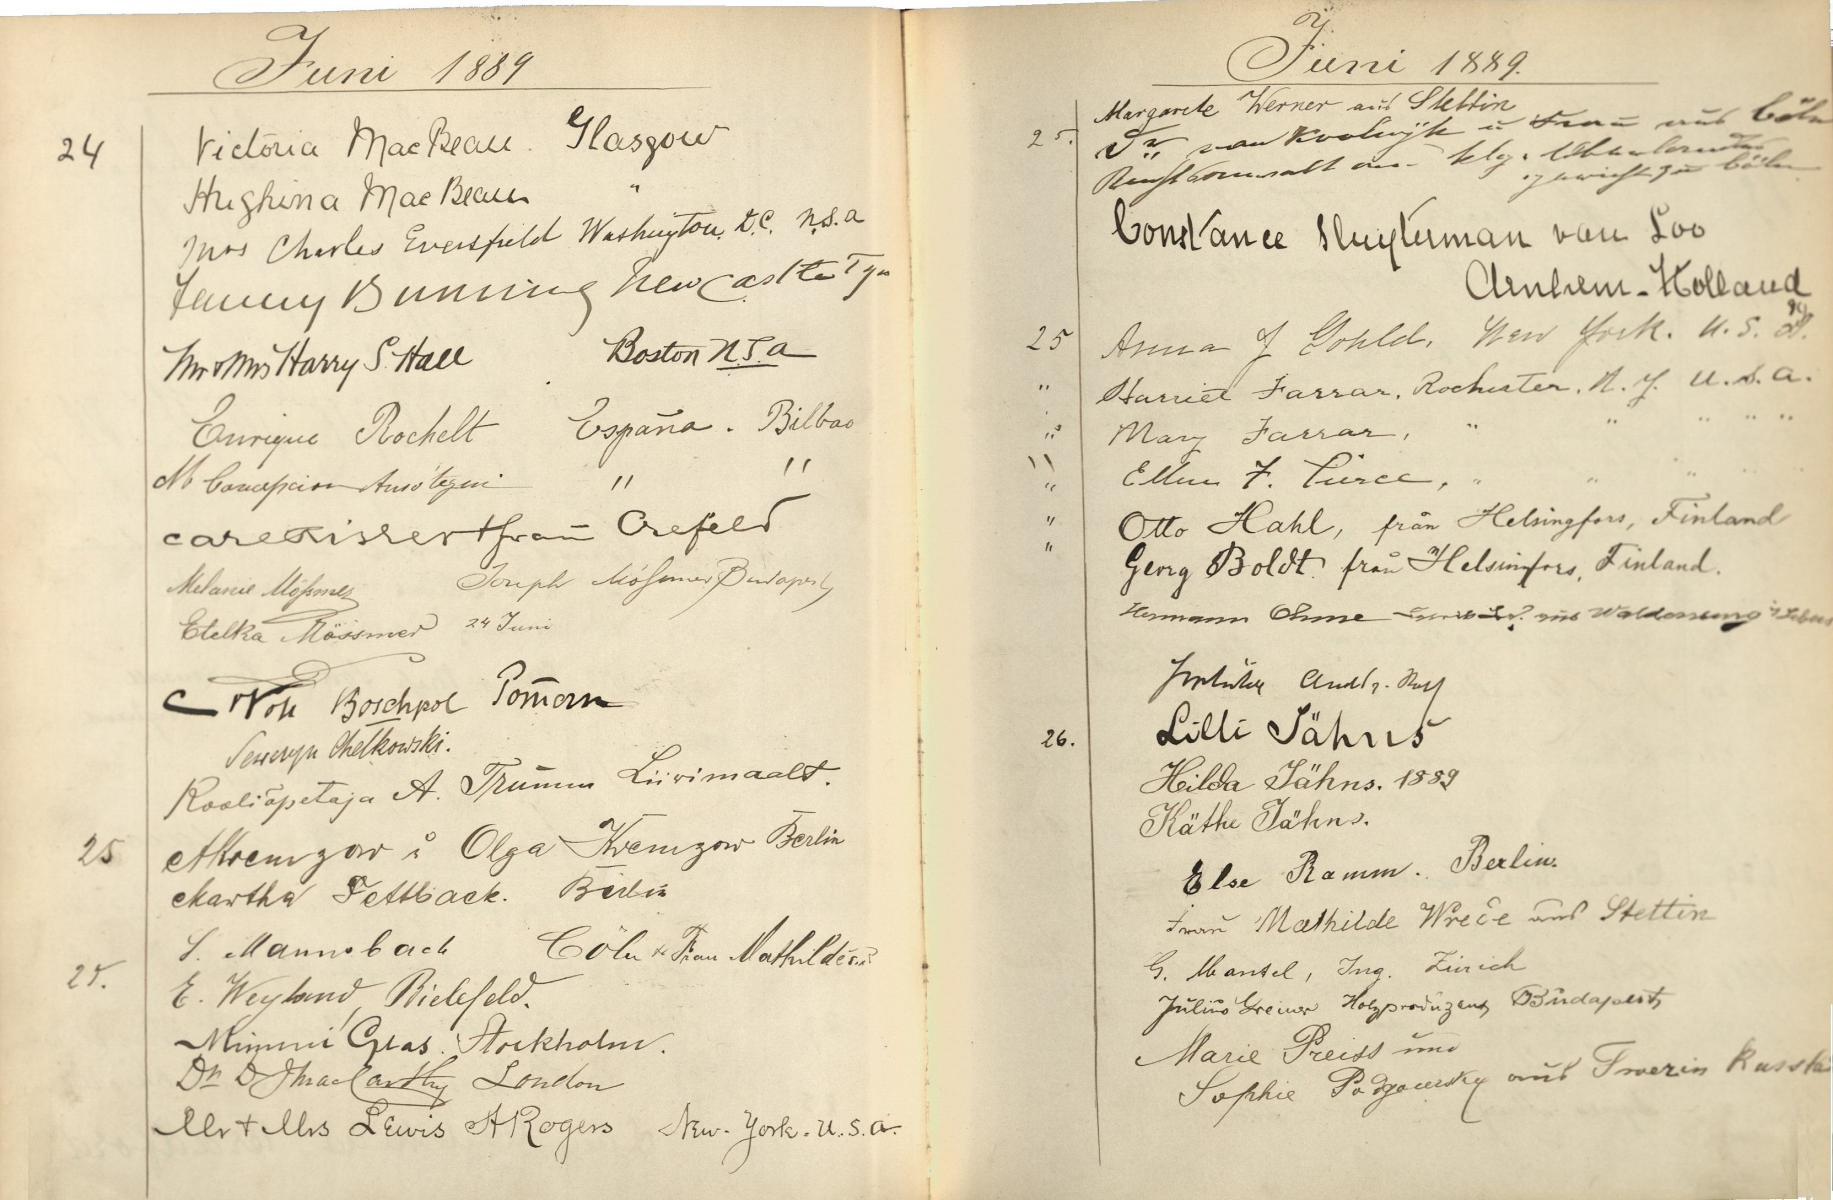 Juni 1889
24 Victoria MacBeau. Glasgow
Hughina MacBeau "
Mrs Charles Eversfield Washington. D.C. U.S.a
Fanny Bunning Newcastle Tyn
Mr & Mrs Harry S. Hall Boston U.S.a
Enrique Rochelt España. Bilbao
M Concepcion " "
Frau Crefeld
Melanie Mössmer Joseph Mössmer Budapest
Etelka Mössmer 24 Juni
Boschpol Pomern
Seweryn Chelkowski.
Kooliõpetaja A. Trumm Liivimaalt.
25 AKremzow u Olga Kremzow Berlin
Martha Fettback. Berlin
S. Mannsbach Cöln & Frau Mathilde
25. E. Weyland, Bielefeld.
Mimmi Glas. Stockholm.
Dr D J MacCarthy London
Mr + Mrs Lewis A Rogers New-York. U.S.a.
Juni 1889.
Margarete Werner aus Stettin
25. Dr van u Frau aus Cöln
zu Cöln
Constance Sluyterman van Loo
Arnhem-Holland
25 Anna J Gould, New York. U.S.
" Harriet Farrar, Rochester, N.Y. U.S.A.
" Mary Farrar, " " " " "
" Ellen F. Pierce, " " "
" Otto Hahl, från Helsingfors, Finland
" Georg Boldt. från Helsinfors, Finland.
Hermann Ohme aus
26. Lilli Jähns
Hilda Jähns. 1889
Käthe Jähns.
Else Ramm. Berlin.
Frau Mathilde Wrede aus Stettin
G. Mantel, Ing. Zürich
Julius Greiner Holzproduzent Budapest
Marie Preiss und
Sophie Podgoursky aus Twerin